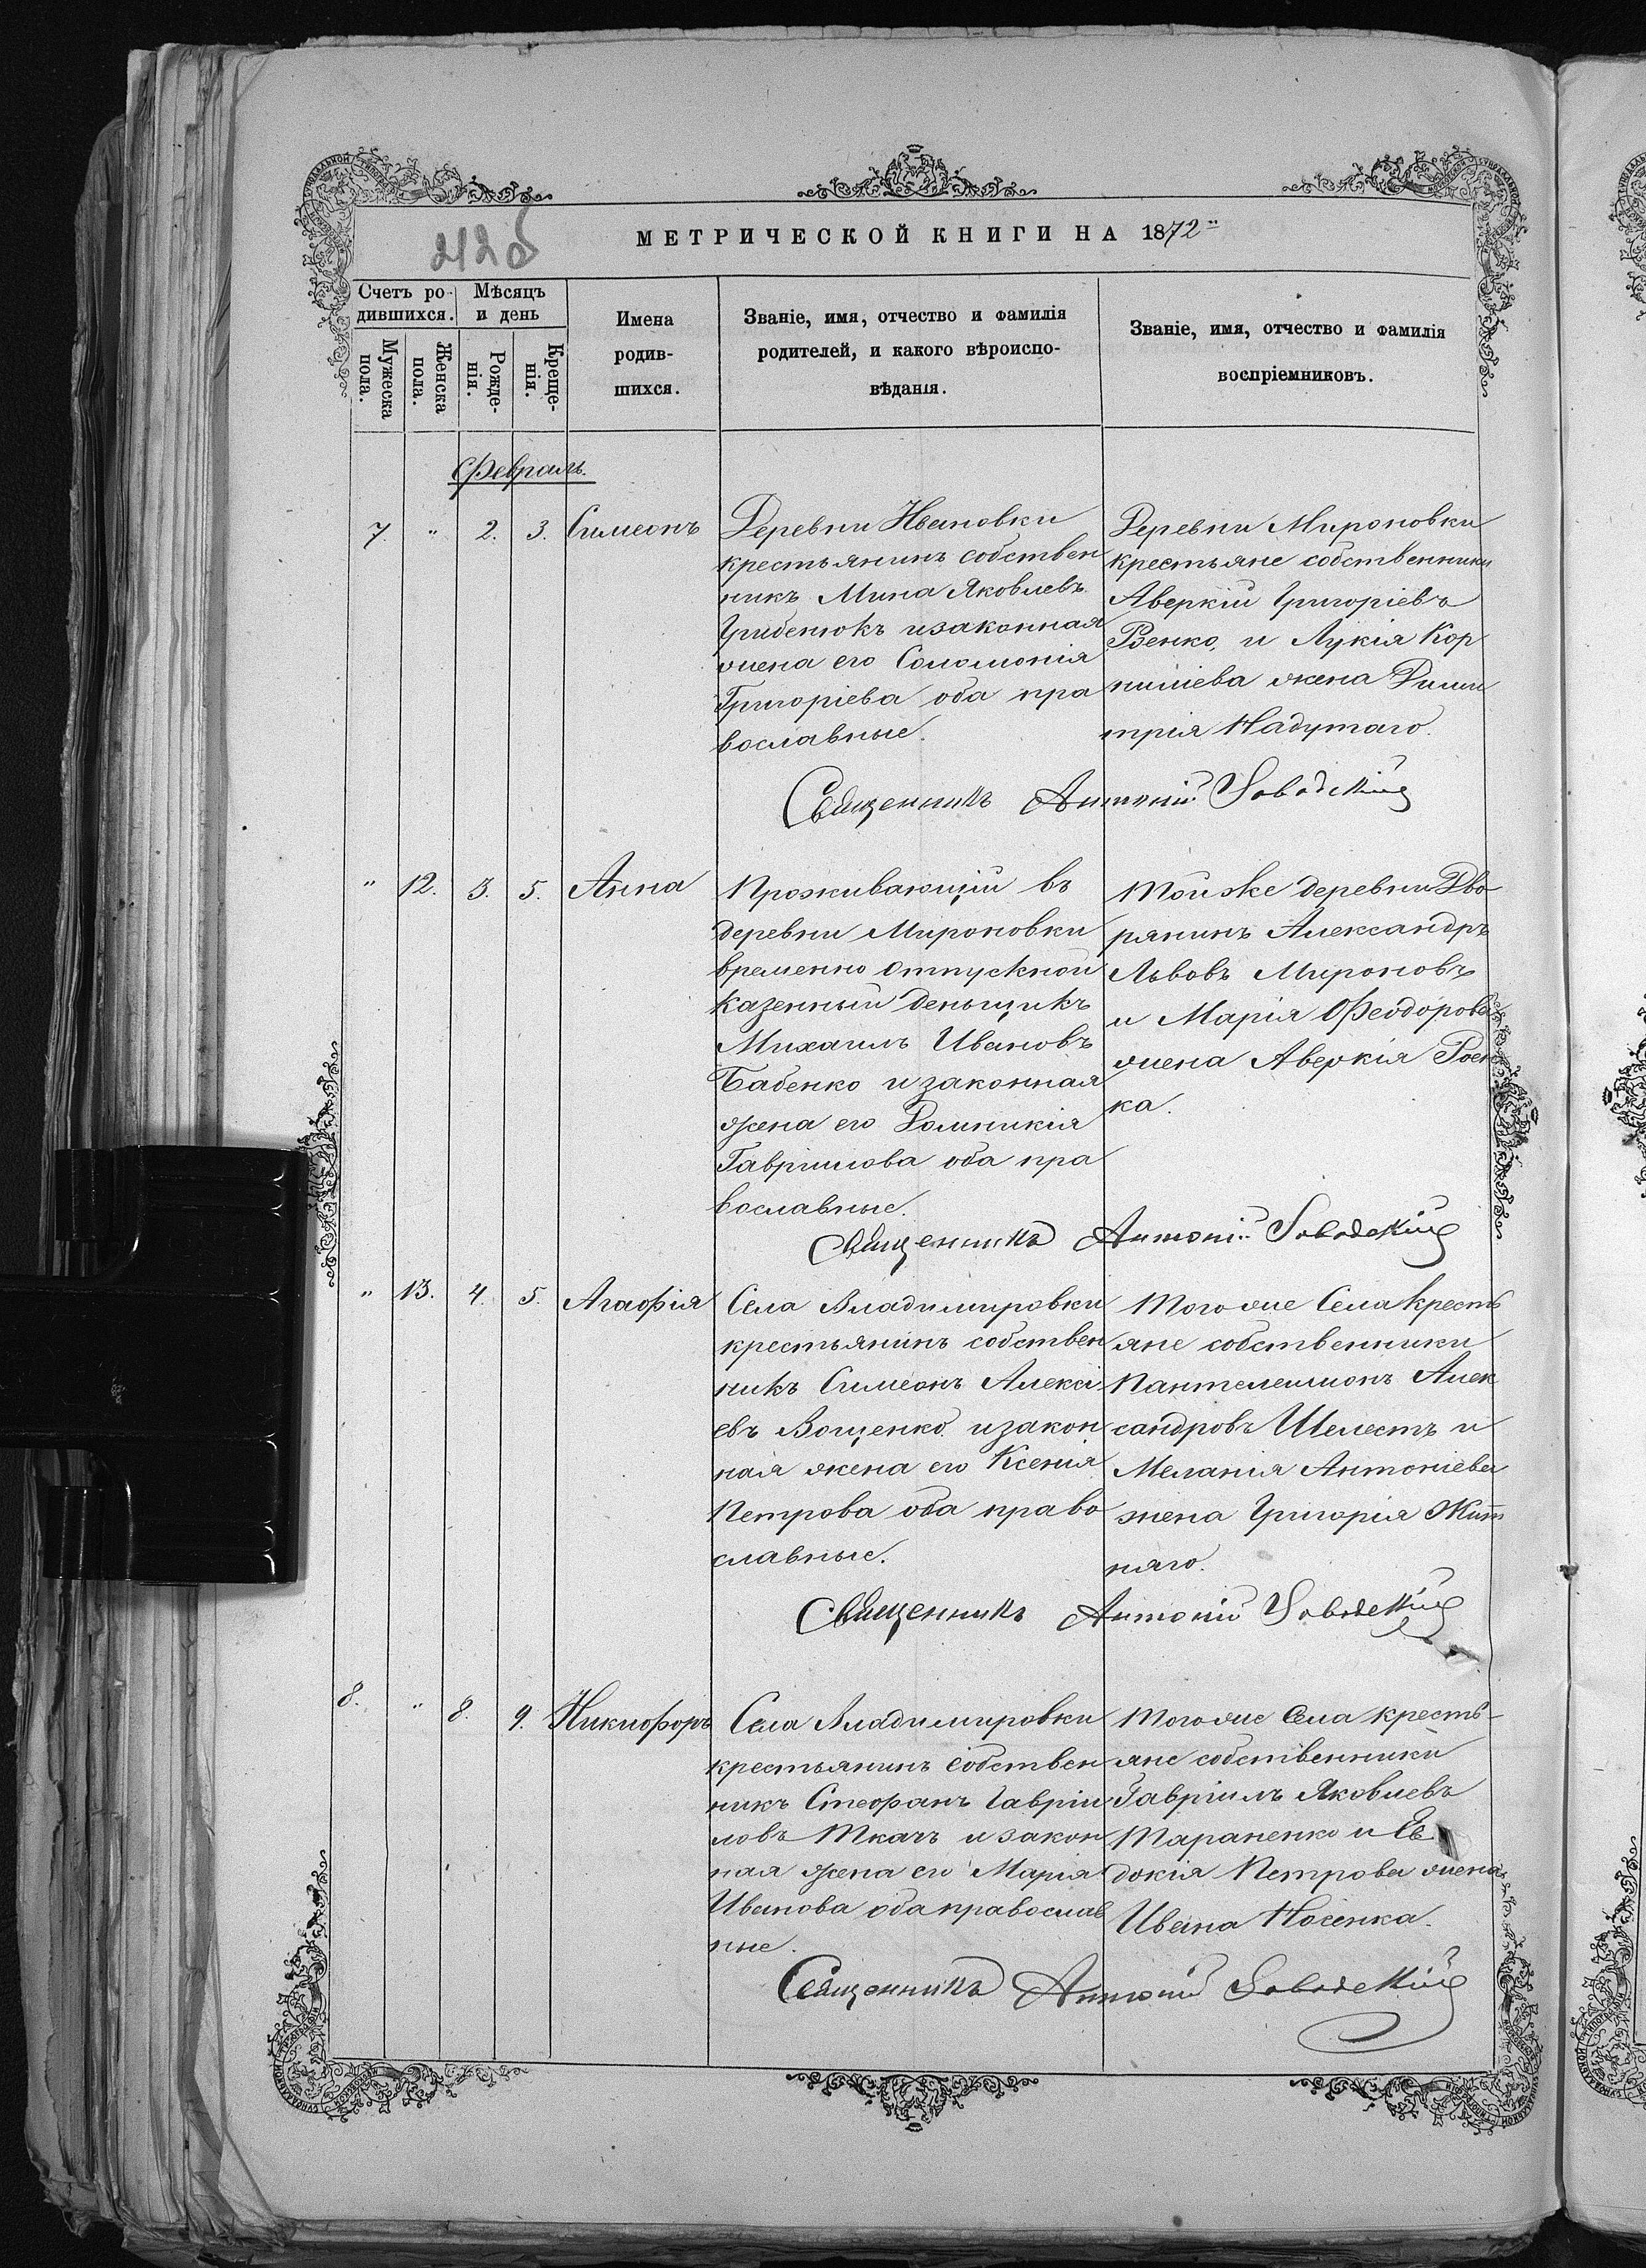 212об
МЕТРИЧЕСКОЙ КНИГИ НА 1872
Счетъ ро-
дившихся.
Мужеска
пола.
Женска
пола.
Мѣсяцъ
и день
Рожде-
нія.
Креще-
нія.
Имена
родив-
шихся.
Званіе, имя, отчество и фамилія
родителей, и какого вѣроиспо-
вѣданія.
Званіе, имя, отчество и фамилія
воспріемниковъ.
Февраль.
7. " 2. 3. Симеонъ
Деревни Ивановки
крестьянинъ собствен
никъ Мина Яковлевъ
Грибенюкъ и законная
жена его Соломонія
Григоріева оба пра
вославные.
Деревни Мироновки
крестьяне собственники
Аверкій Григоріевъ
Рзенко, и Лукія Кор
ниліева жена Дими
трія Надутаго.
Священникъ Антоній
" 12. 3. 5. Анна
Проживающій въ
деревни Мироновки
временно отпускной
казенный деньщикъ
Михаилъ Ивановъ
Бабенко и законная
жена его Домникія
Гавріилова оба пра
вославные.
Той же деревни Дво
рянинъ Александръ
Львовъ Мироновъ
и Марія Феодорова
жена Аверкія
ка.
Священникъ Антоній
" 13. 4. 5. Агафія
Села Владимировки
крестьянинъ собствен
никъ Симеонъ Алексі
евъ Вощенко и закон
ная жена его Ксенія
Петрова оба право
славные.
Того же Села кресть
яне собственники
Пантелеимонъ Алек
сандровъ Шелестъ и
Меланія Антоніева
жена Григорія Жит
няго.
Священникъ Антоній
8. " 8. 9. Никифоръ
Села Владимировки
крестьянинъ собствен
никъ Стефанъ Гавріи
ловъ Ткачъ и закон
ная жена его Марія
Иванова оба православ
ные.
Того же Села кресть-
яне собственники
Гавріилъ Яковлевъ
Тараненко и Ев
докія Петрова жена
Ивана Носенка.
Священникъ Антоній